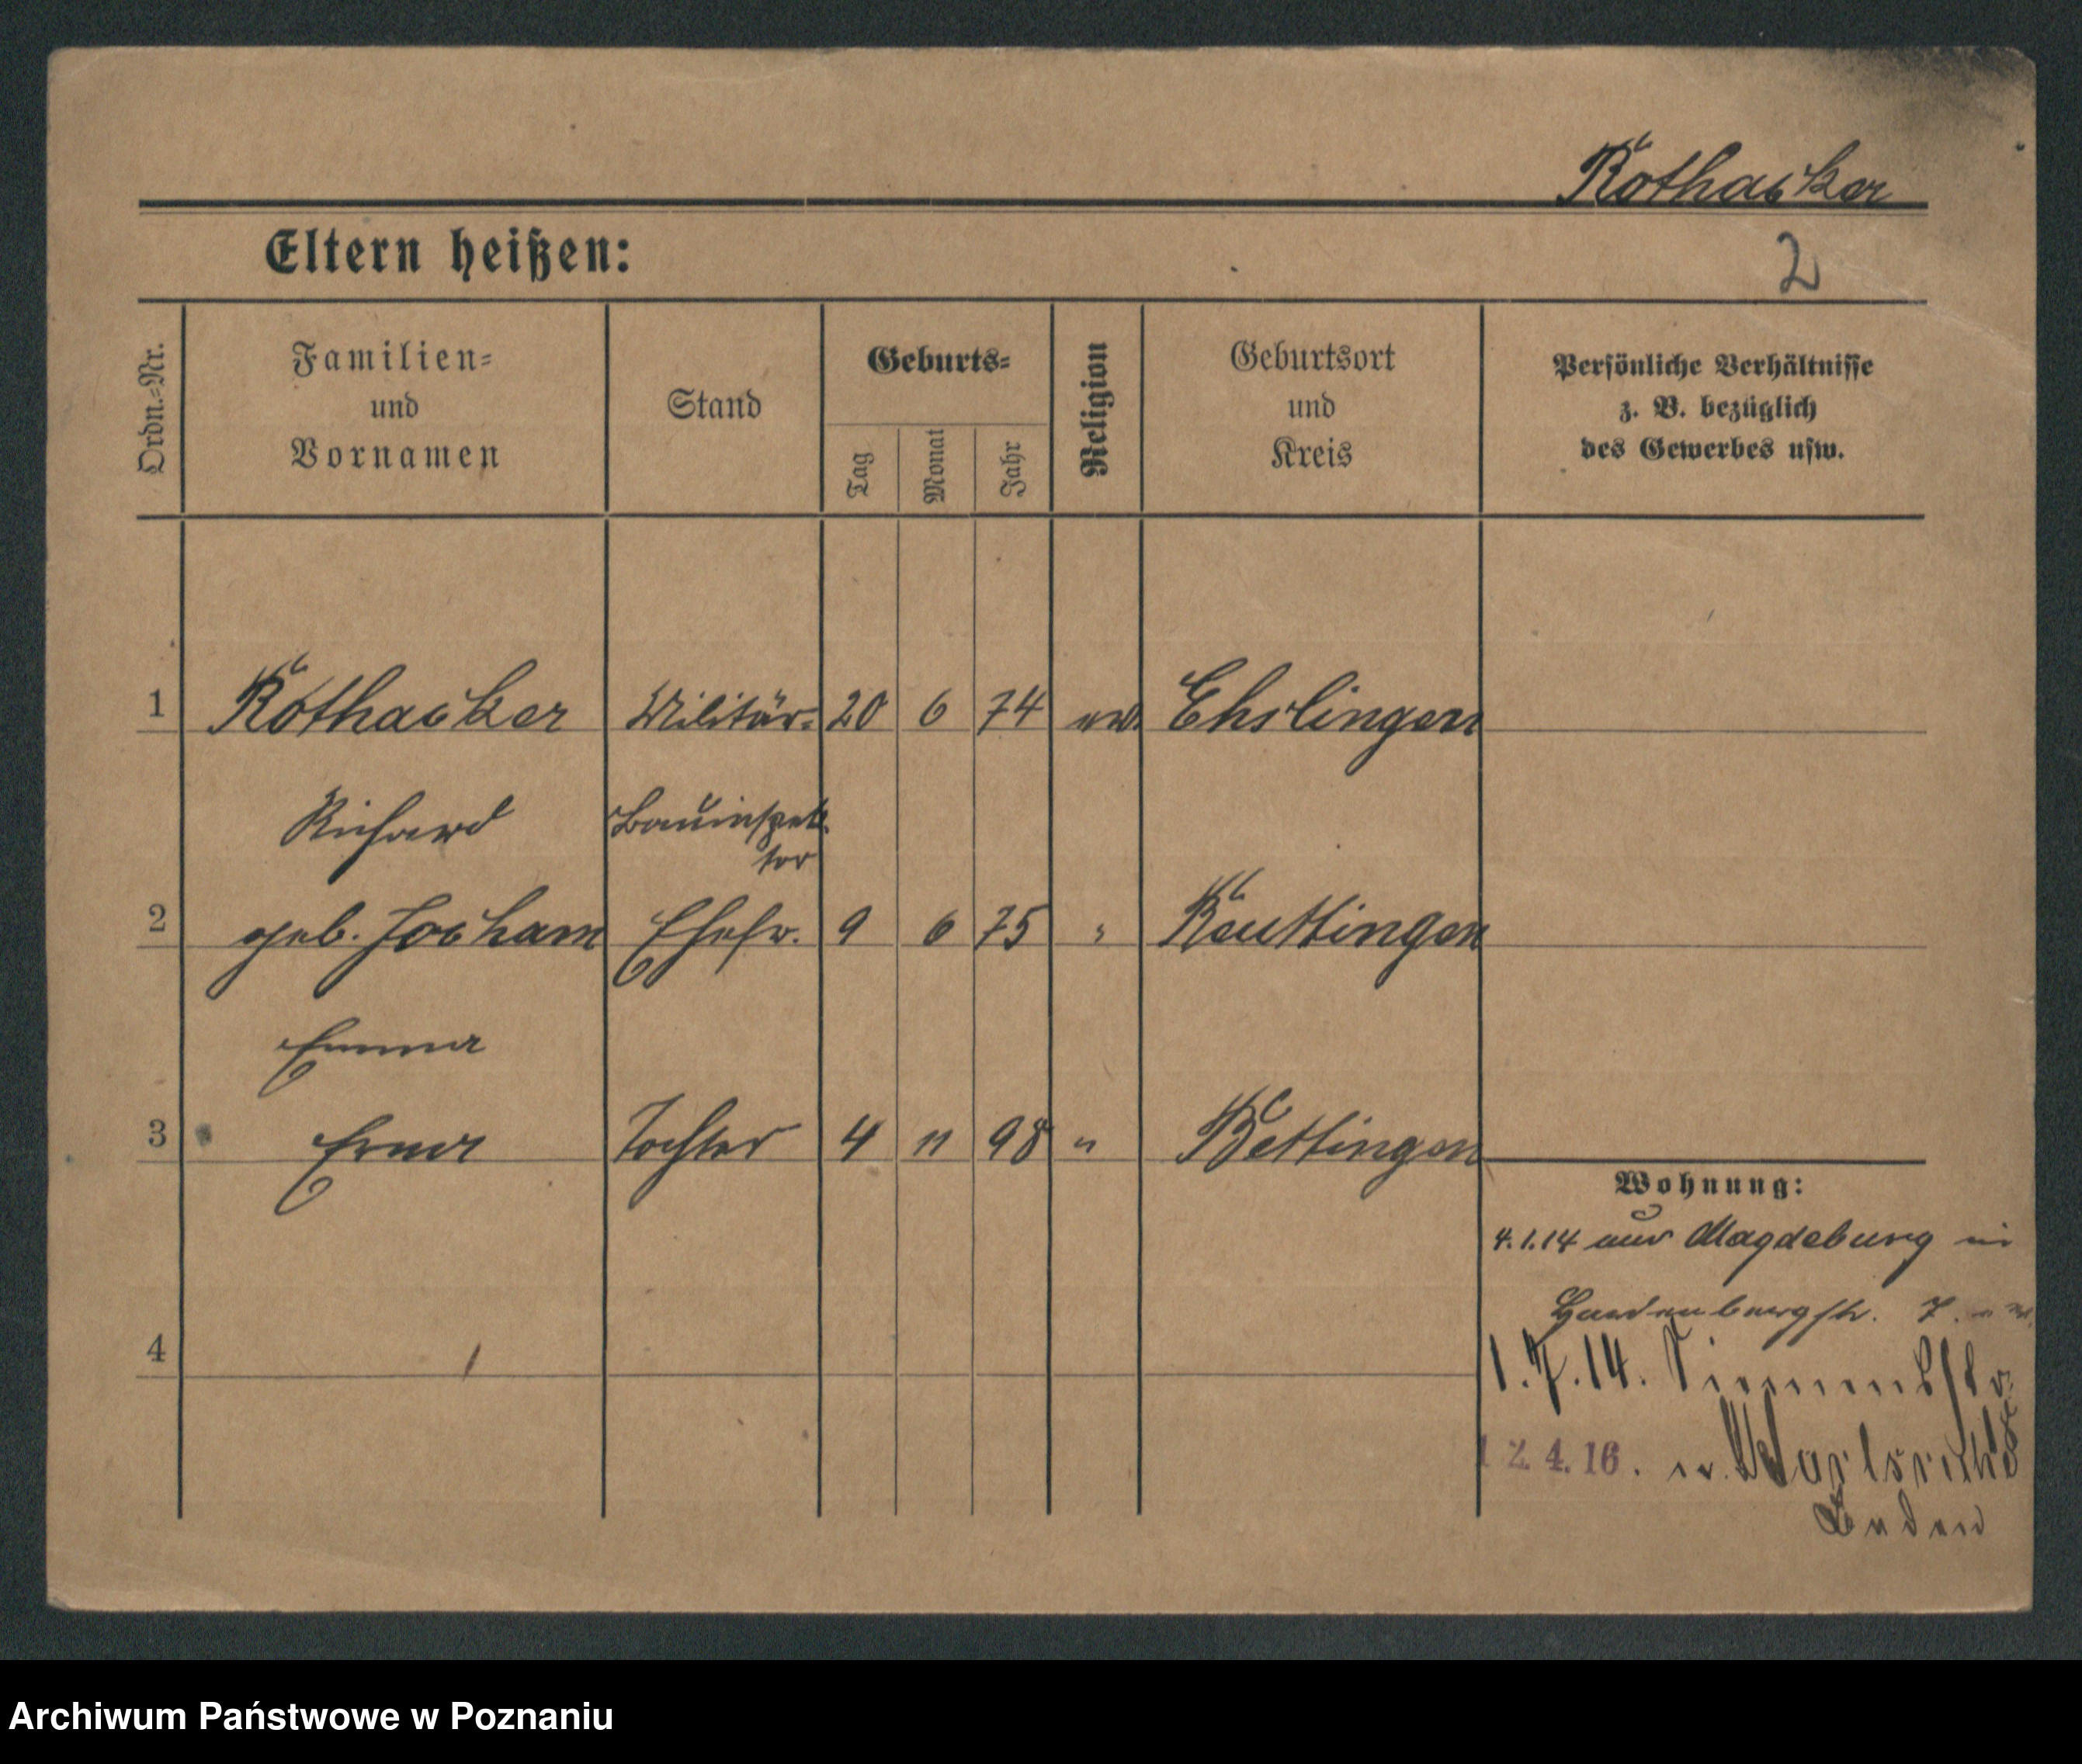 Rothacker
Eltern heißen:
2
Ordn.=Nr.
Familien=
und
Vornamen
Stand
Geburts=
Tag
Monat
Jahr
Religion
Geburtsort
und
Kreis
Persönliche Verhältnisse
z. B. bezüglich
des Gewerbes usw.
1 Rothacker Militär= 20 6 74 ev. Ehslingen
Richard Bauinspek
tor
2 geb. Jocham Ehefr. 9 6 75 " Reuttingen
Emma
3 Erna Tochter 4 11 98 " Bettingen
Wohnung:
4.1.14 aus Magdeburg in
Hardenbergstr. 7.
4
1.7.14.
12.4.16. n. Karlsruhe
Baden
Archiwum Państwowe w Poznaniu